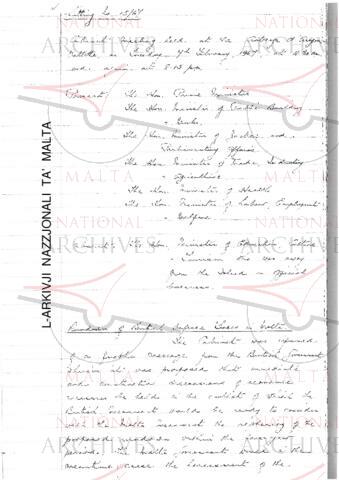 Sitting No. 15/67
Cabinet meeting held at the Auberge d'Aragon
Valletta on Tuesday 7th February, 1967, at
and again at 8.15 p.m.
Present: The Hon. Prime Minister
The Hon. Minister of Public Building
& Works.
The Hon. Minister of Justice and
Parliamentary Affairs
The Hon. Minister of Trade, Industry
& Agriculture
The Hon. Minister of Health
The Hon. Minister of Labour, Employment
& Welfare
Absent: The Hon. Minister of Education, Culture
& Tourism who was away
from the Island on special
business.
Rundown of British Defence Forces in Malta.
The Cabinet was informed
of a further message from the British Government
wherein it was proposed that immediate
and constructive discussions of economic
be held in the context of which the
British Government would be ready to consider
with the Malta Government the rephasing of the
proposed rundown within the four year
period. The Malta Government would in the
meantime cause the Government of the
L-ARKIVJI NAZZJONALI TA' MALTA
NATIONAL
ARCHIVES
MALTA